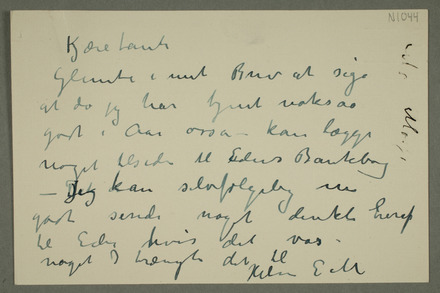 N1044
Kjære tante
Glemte i mit Brev at sige
at da jeg har tjent noksaa
godt i Aar ossa – kan lægge
noget tilside til Eders Bankbog
– Jeg kan selvfølgelig nu
godt sende noget direkte herfra
til Eder hvis det var
noget I trængte det til
Hilsen E M